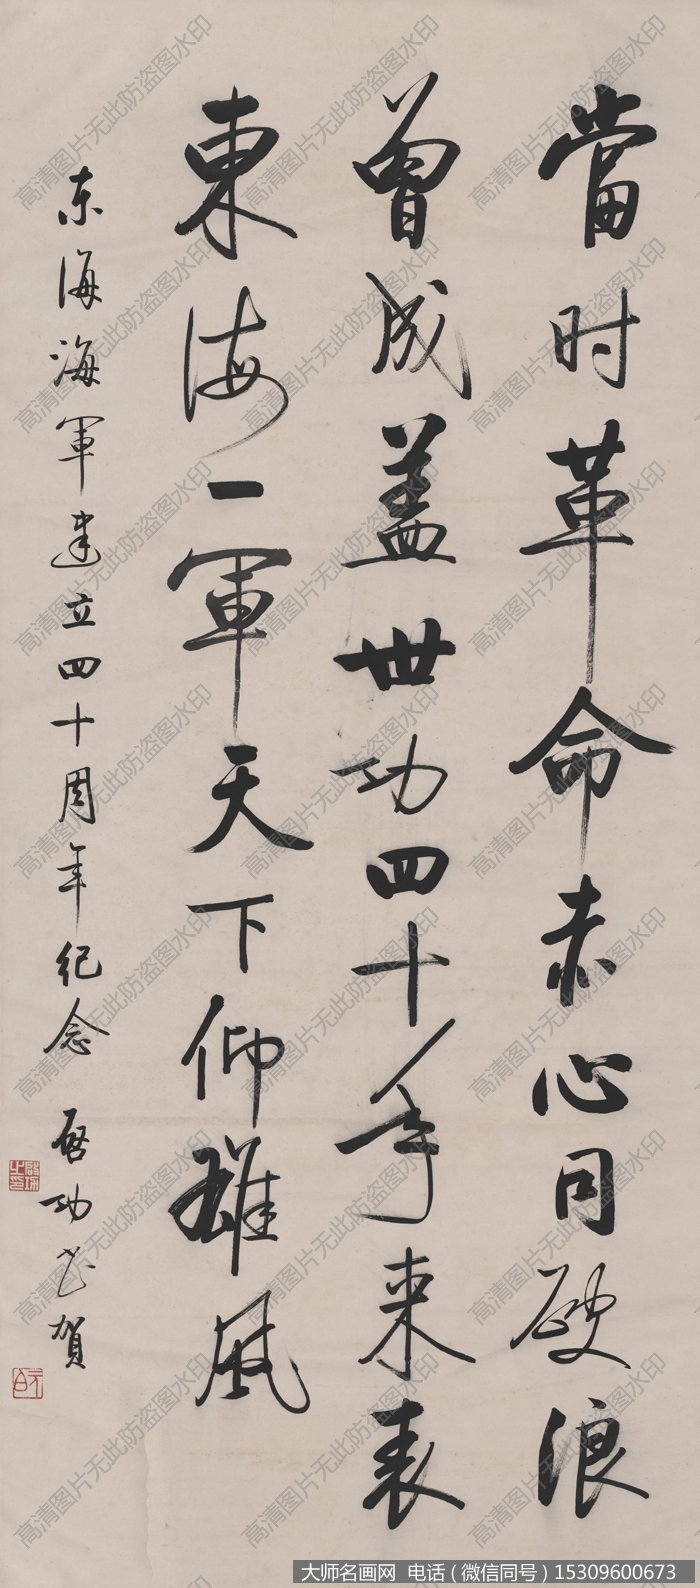 當时革命赤心同破浪
曾成盖世功四十年来表
東海一軍天下仰雄風
东海海軍建立四十周年纪念 啓功书贺
啓功之印
元白
高清图片无此防盗图水印
大师名画网 电话（微信同号）15309600673